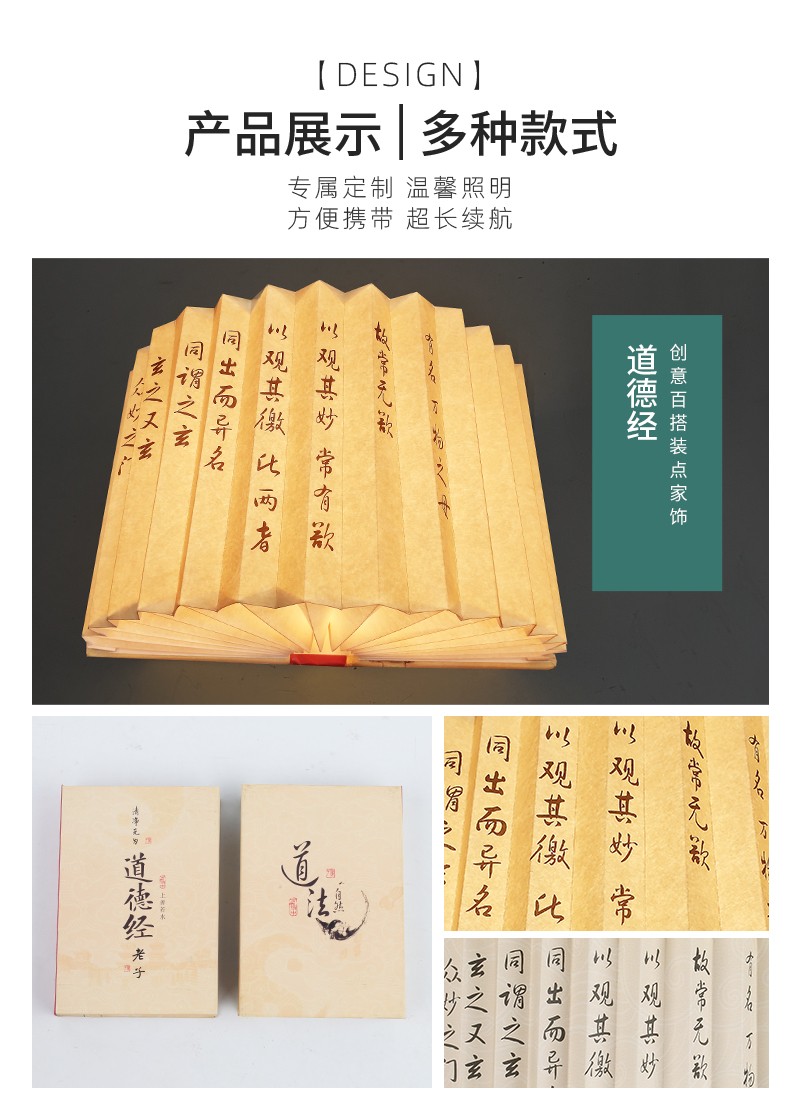 【DESIGN】
产品展示|多种款式
专属定制 温馨照明
方便携带 超长续航
有名 万物之母
故常无欲
以观其妙 常有欲
以观其徼 此两者
同出而异名
同谓之玄
玄之又玄
众妙之门
创意百搭装点家饰
道德经
清净无为
道德经
上善若水
老子
道法
自然
有名 万物
故常无欲
以观其妙 常
以观其徼 此
同出而异名
同谓之
有名 万物
故常无欲
以观其妙
以观其徼
同出而异
同谓之玄
玄之又玄
众妙之门